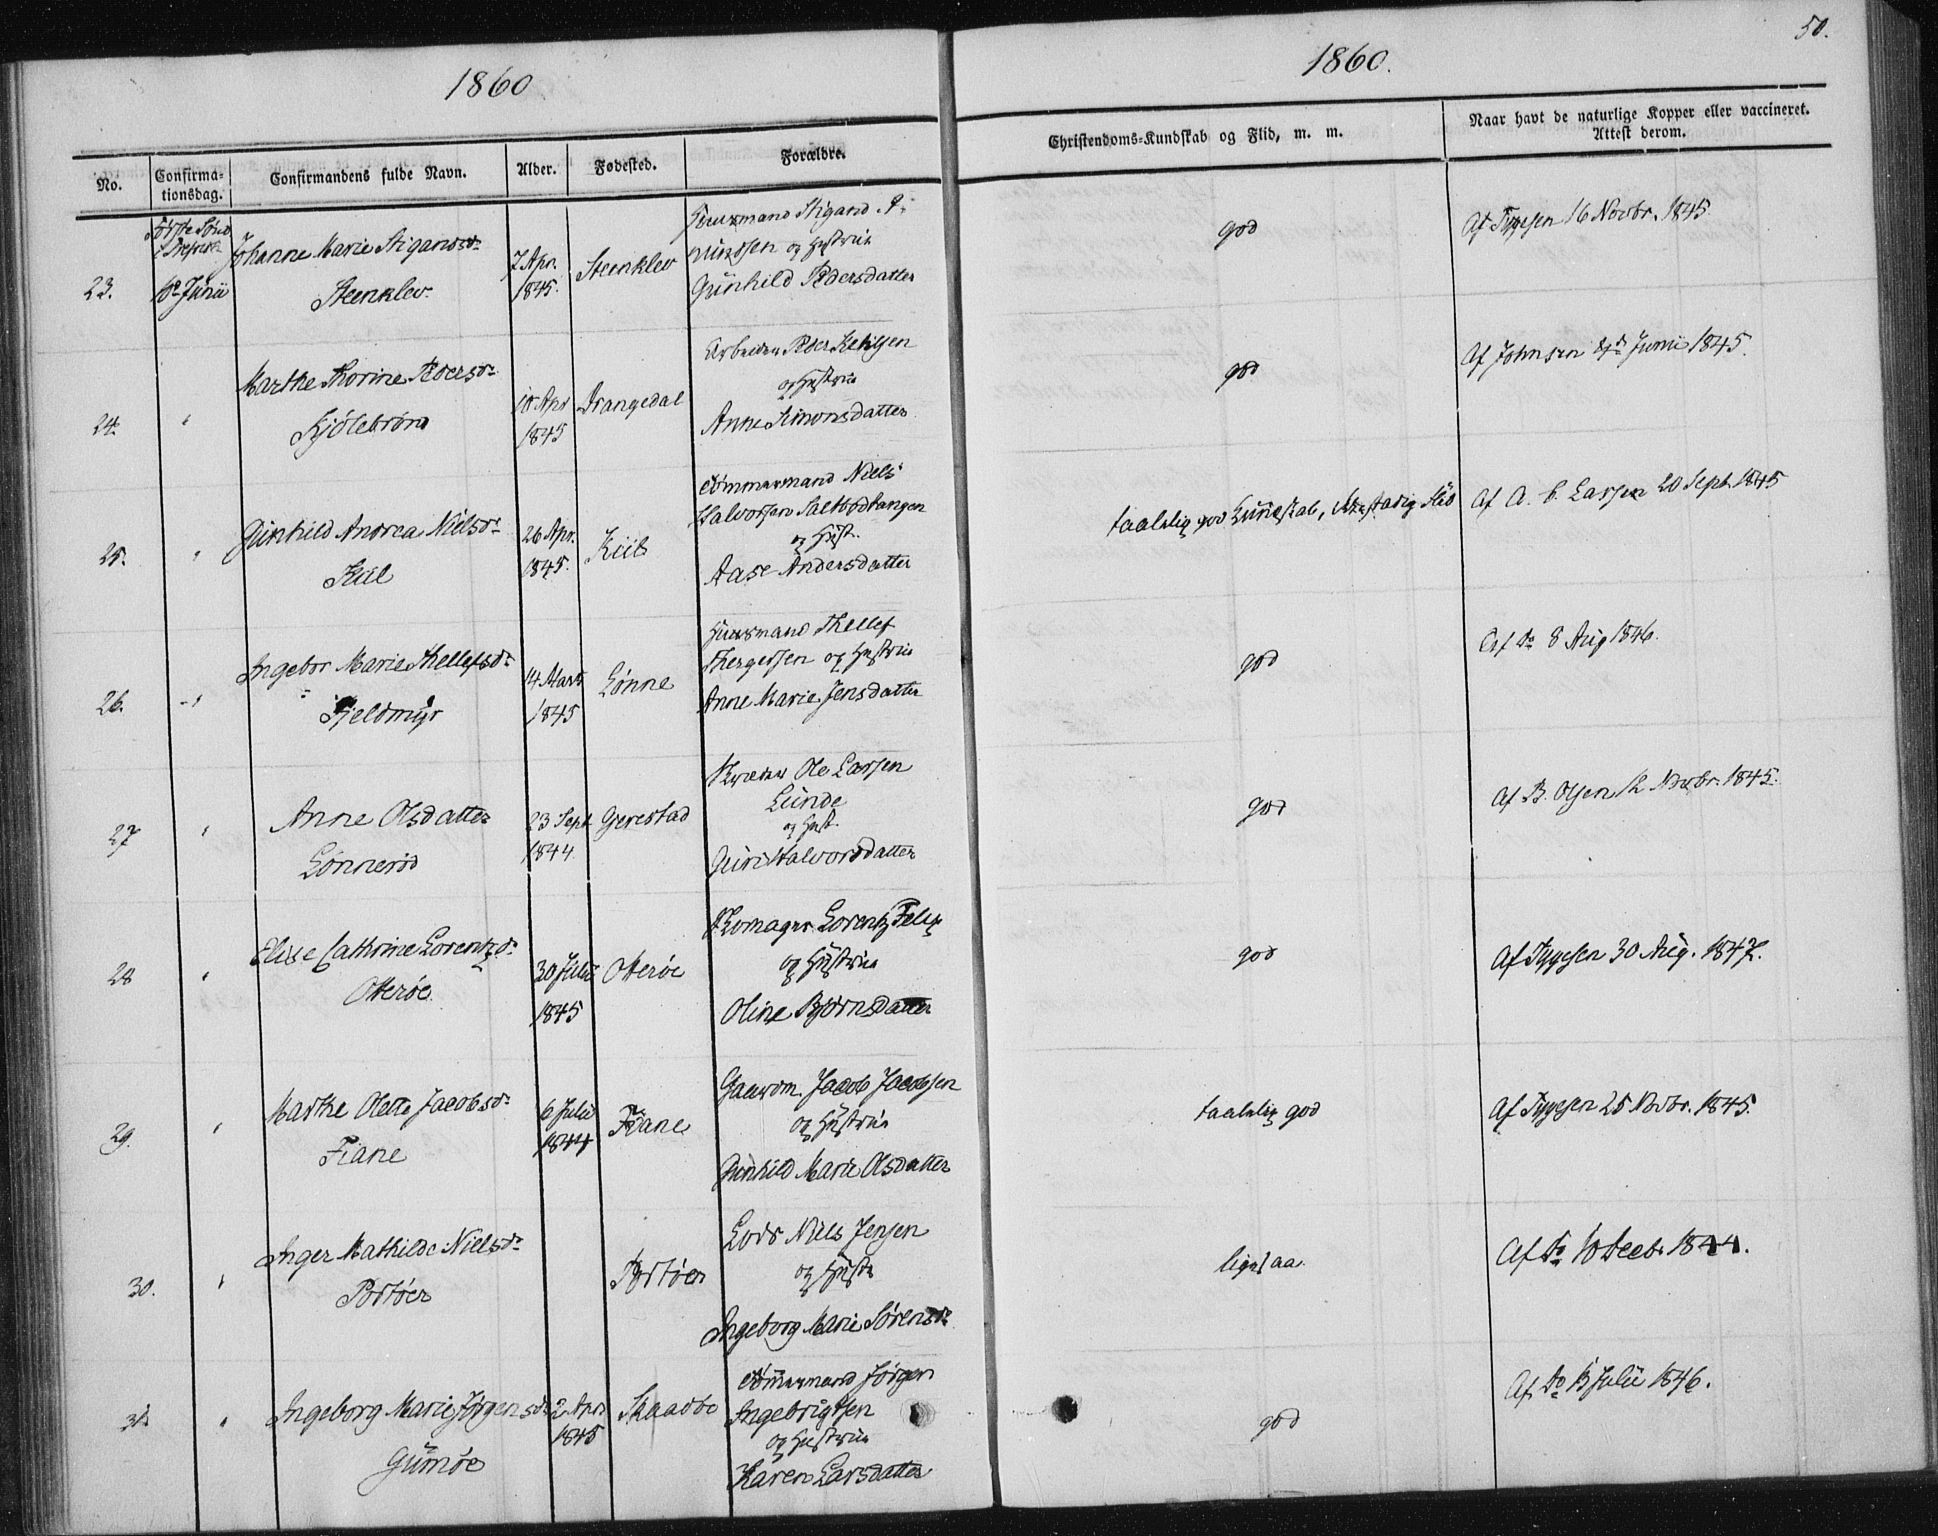 1860
1860.
50.
No.
Confirma-
tionsdag.
Confirmandens fulde Navn.
Alder.
Fødested.
Forældre.
Christendoms-Kundskab og Flid, m. m.
Naar havt de naturlige Kopper eller vaccineret.
Attest derom.
23.
10de Junii
Johanne Marie Stigandsdr
Steenklev
7 Apr.
1845.
Steenklev
Huusmand Stigand
og Hustrue
Gunhild Pedersdatter
god
Af Tygesen 16 Novbr. 1845
24.
"
Marthe Thorine Pedersdr
Kjølebrønd
10 Apr
1845
Drangedal
Arbeider Peder Ketilsen
og Hustrue
Anne Simonsdatter
god
Af Johnsen Junii 1845.
25.
"
Gunhild Andrea Nielsdr
Kiil
26 Apr.
1845.
Kiil
Tømmermand Niels
Halvorsen Saltbodtangen
og Hust.
Aase Andersdatter
taalelig god Kundskab, Flid
Af A. C. Larsen 20 Septb. 1845
26.
"
Ingebor Marie Thellefsdr
Fjeldmyr
14 Marts
1845
Lønne
Huusmand Thellef
Thergersen og Hustrue
Anne Marie Jensdatter
god
Af Do 8 Aug 1846.
27
"
Anne Olsdatter
Lønnerød
23 Sept
1844.
Gjerestad
Skræder Ole Larsen
Lunde
og Hust.
Guri Halvorsdatter
god
Af B. Olsen 12 Novbr. 1845.
28
"
Elise Cathrine Lorentzdr
Otterøe
30 Julii
1845
Otterøe
Skomager Lorentz Felix
og Hustrue
Oline Bjørnsdatter
god
Af Tygesen 30 Aug. 1847.
29.
"
Marthe Olette Jacobsdr
Fiane
6 Julii
1844
Fiane
Gaardm. Jacob Jacobsen
og Hustrue
Gunhild Marie Olsdatter
taalelig god
Af Tygesen 25 Novbr. 1845.
30.
"
Inger Mathilde Nielsdr
Portøer
Portøer
Lods Niels Jensen
og Hustr
Ingeborg Marie Sørensdr
ligesaa.
Af Do 10 Decbr 1844.
31.
"
Ingeborg Marie Jørgensdr
Gumøe
2 Apr.
1845
Skaadbo
Tømmermand Jørgen
Ingebrigtsen
og Hustrue
Karen Larsdatter
god
Af Do 13 Julii 1846.